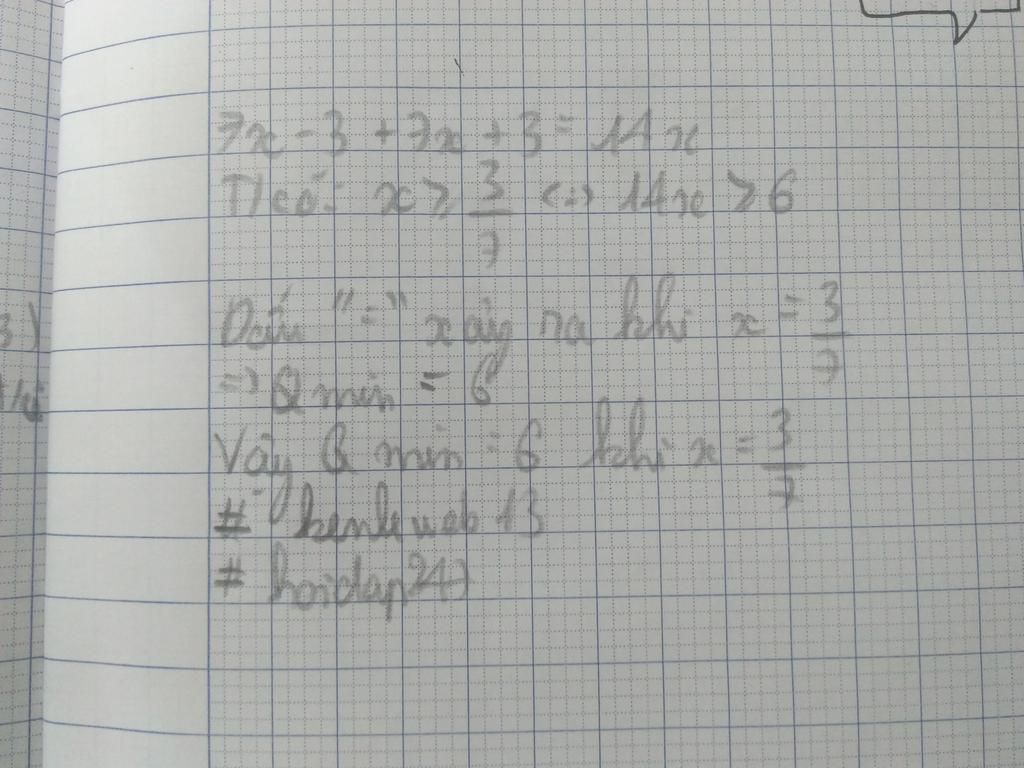 7x - 3 + 7x + 3 = 14x
Có: x ≥ 3/7 <=> 14x ≥ 6
Dấu "=" xảy ra khi x = 3/7
=> Q min = 6
Vậy Q min = 6 khi x = 3/7
# kenhweb13
# hoidap247
3)